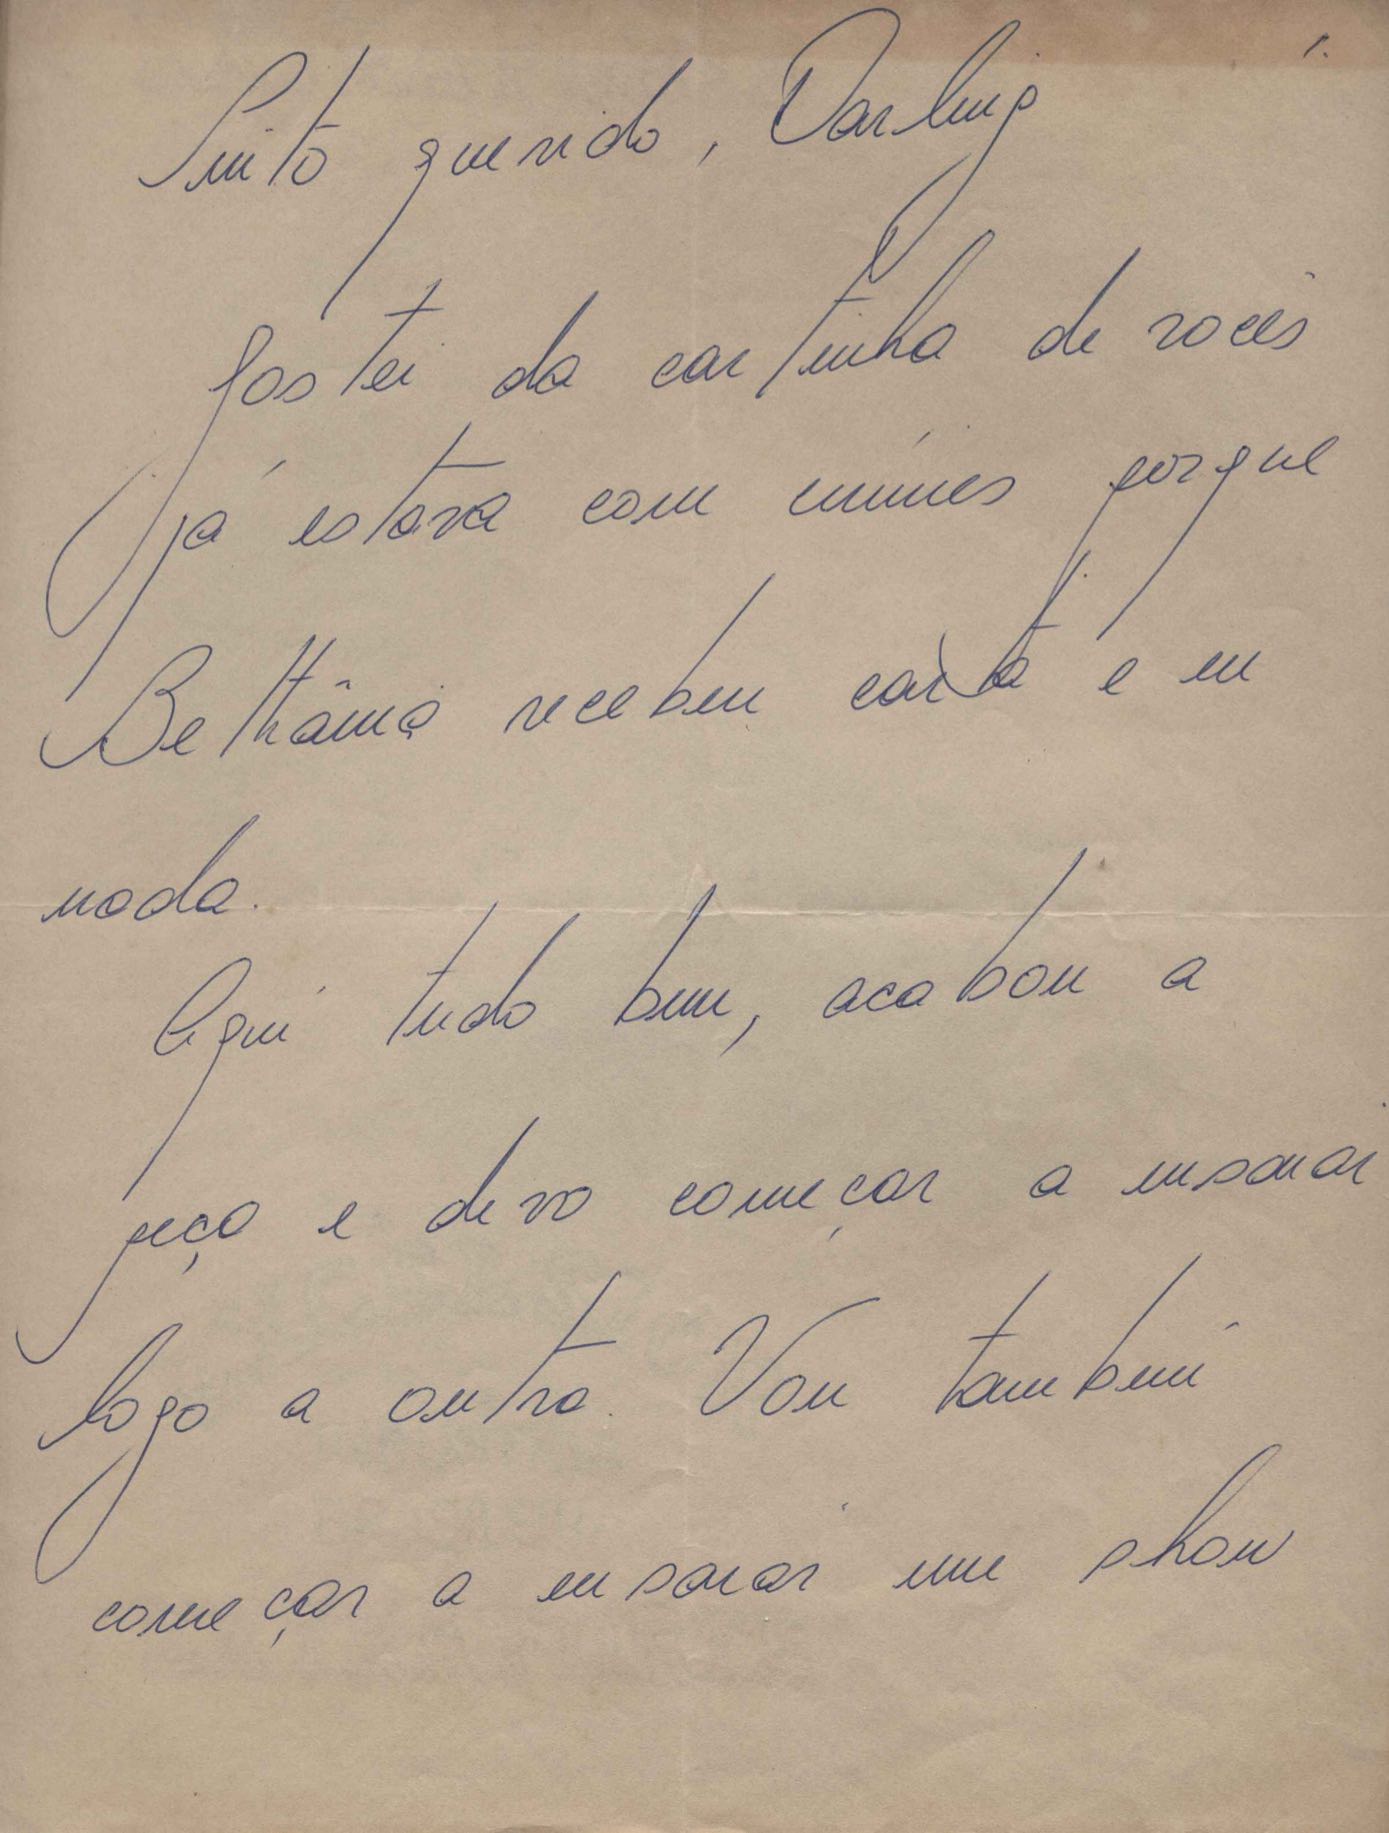 1.
Guito querido, Darling
Gostei da cartinha de vocês
já estava com ciúmes porque
Bethânia recebeu carta e eu
nada.
Aqui tudo bem, acabou a
peça e devo começar a ensaiar
logo a outra. Vou também
começar a ensaiar um show